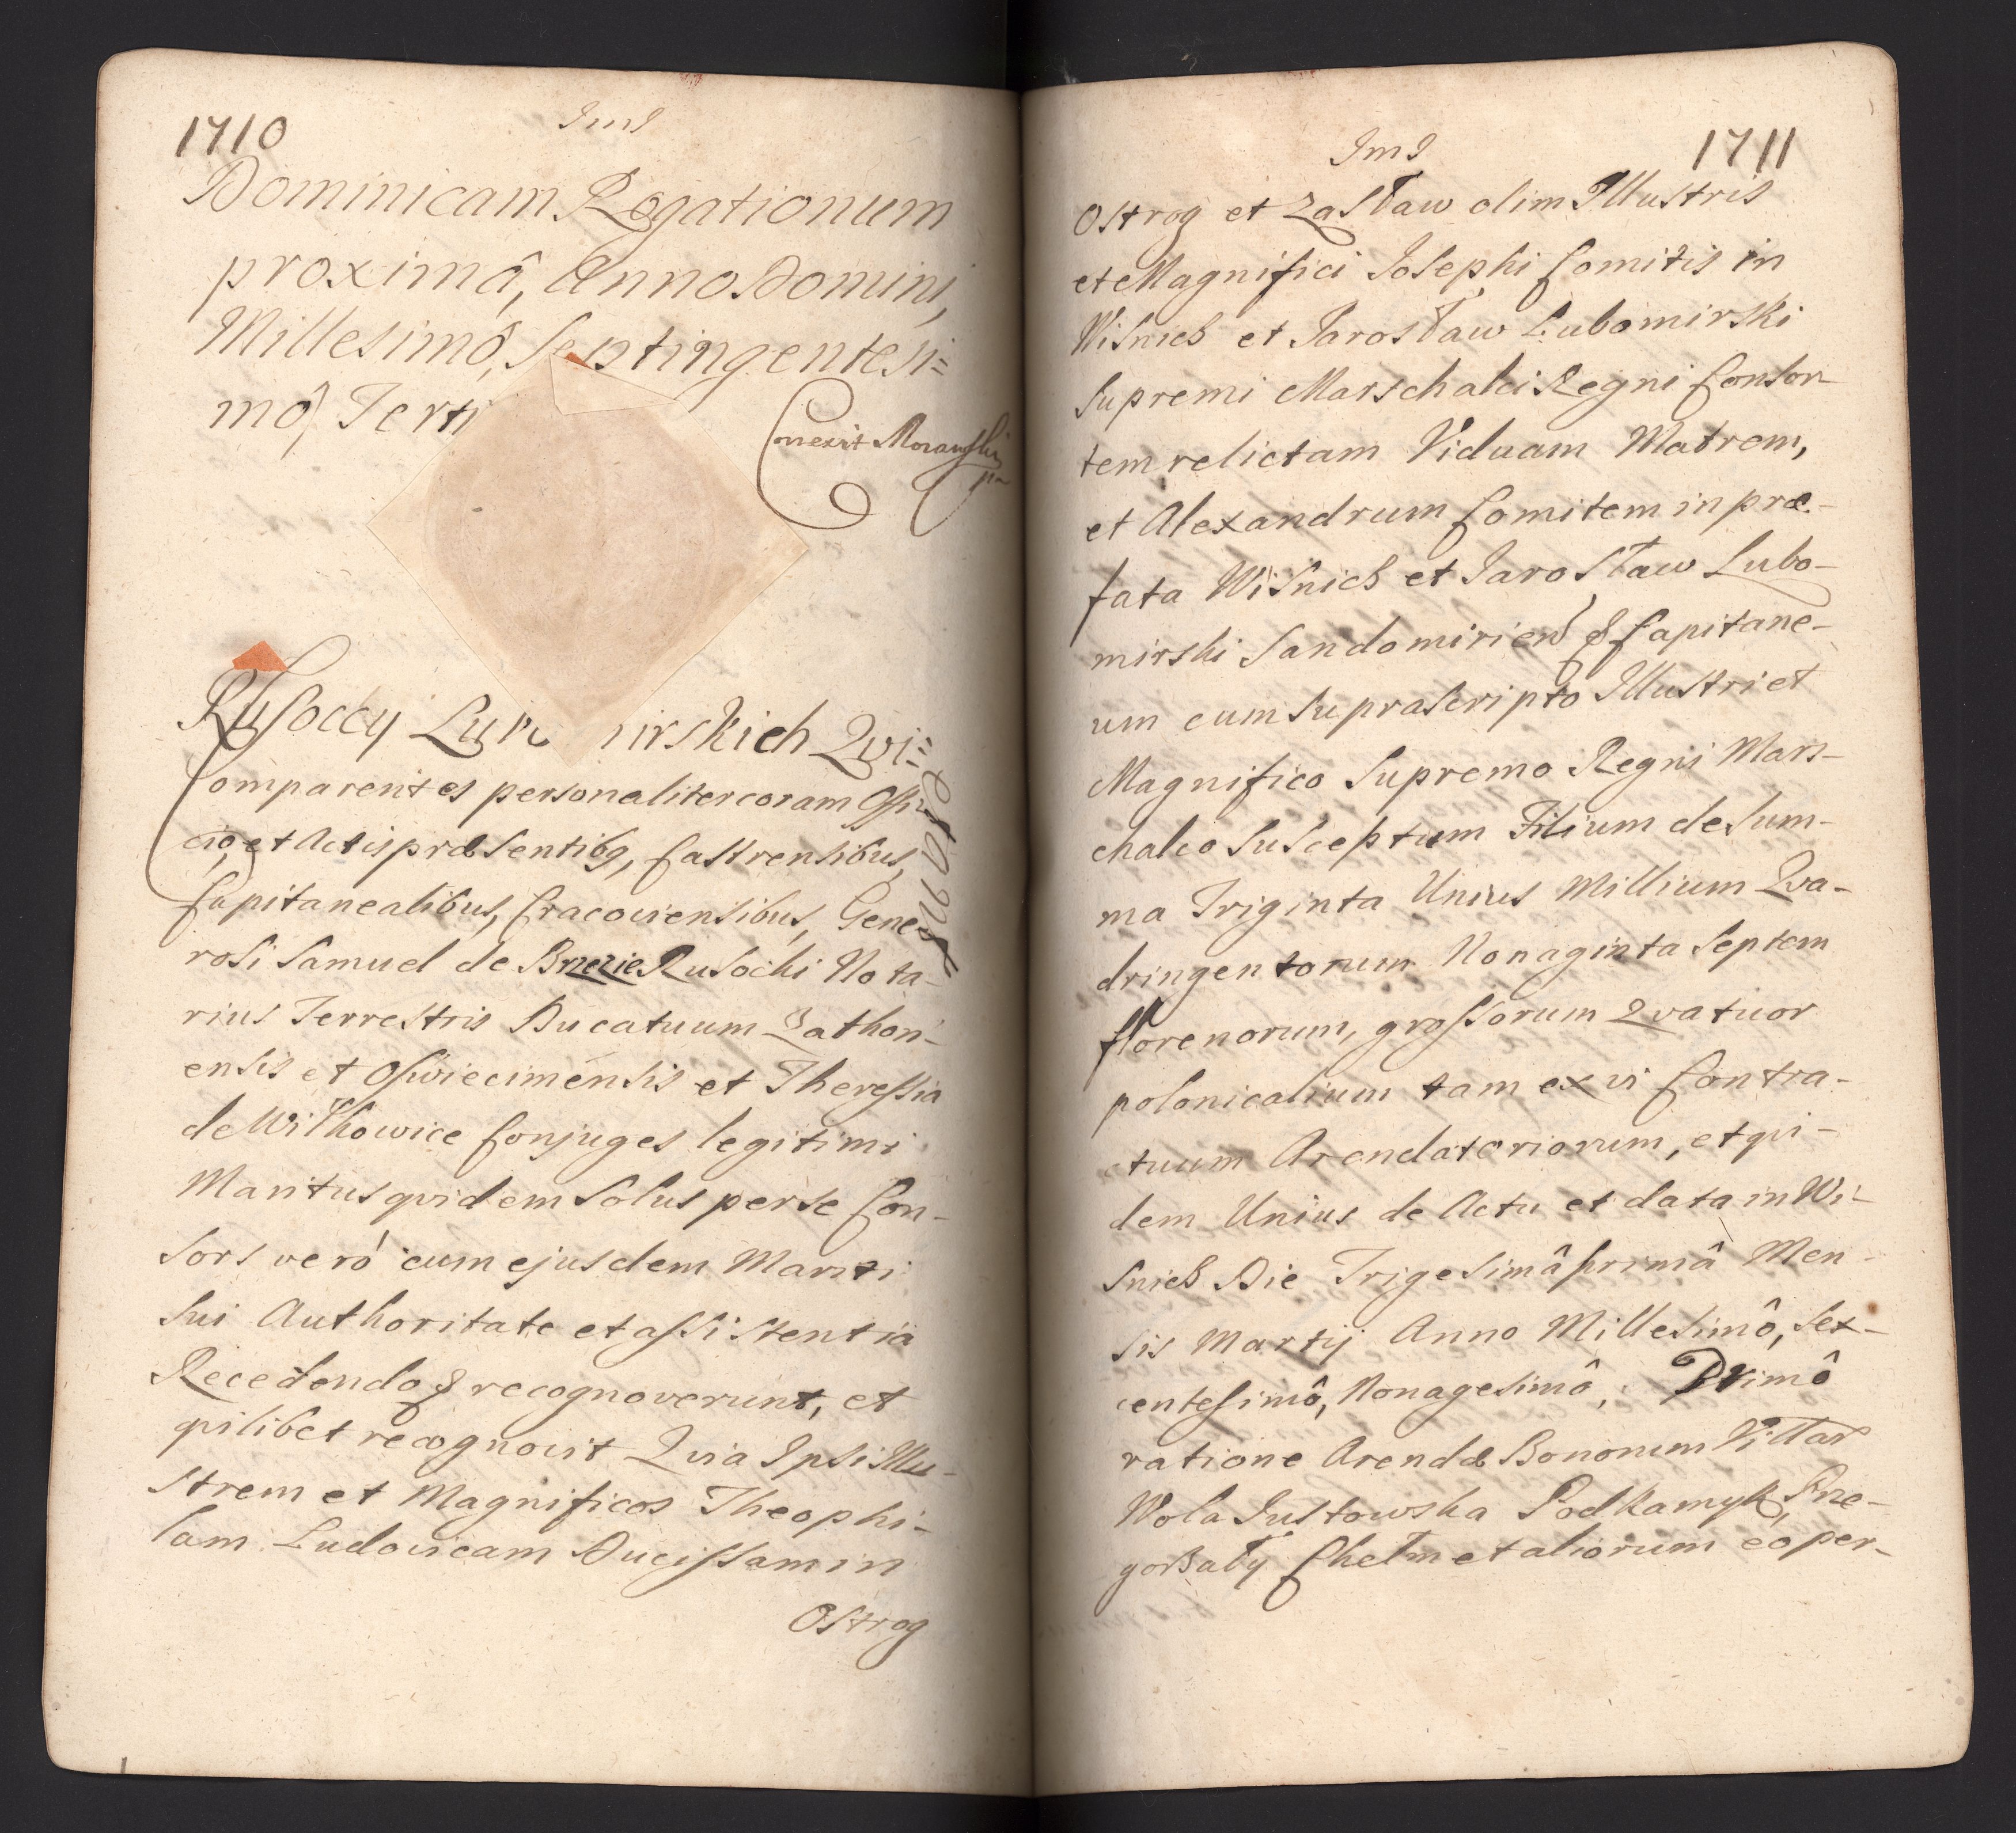 1710
Dominicam Rogationum
proximâ, Anno Domini,
Millesimô, Septingentesi=
mô, Terti
Conexit Morawski
Rusoccy Lu mirskich Qvi=
Comparentes personaliter coram Offi=
cio, et Actis præsentibq, Castrensibus,
Capitanealibus, Cracoviensibus, Gene=
rosi Samuel de Brzezie Rusocki Nota-
rius Terrestris Ducatuum Zathori-
ensis et Oswiecimensis et Theressia
de Wilkowice Conjuges legitimi
Maritus qvidem Solus per se Con-
sors verò cum ejusdem Mariti
Sui Authoritate et assistentia
Recedendo & recognoverunt, et
qvilibet recognovit Qvia Ipsi Illu-
strem et Magnificos Theophi-
lam Ludovicam Ducissam in
Ostrog
ImI 1711
Ostrog et Zasław olim Illustris
et Magnifici Josephi Comitis in
Wisnicz et Jarosław Lubomirski
Supremi Marschalci Regni Conson-
tem relictam Viduam Matrem,
et Alexandrum Comitem in præ-
fata Wisnicz et Jarosław Lubo-
mirski Sandomirien & Capitane-
um cum suprascripto Illustri et
Magnifico Supremo Regni Mars-
chalco Susceptum Filium de Sum-
ma Triginta Unius Millium Qva-
dringentorum Nonaginta Septem
florenorum, grossorum Qvatuor
polonicalium tam ex vi Contra-
ctuum Arendatoriorum, et qvi-
dem Unius de Actu et data in Wi-
snicz Die Trigesimâ primâ Men-
sis Martij Anno Millesimô, Sex-
centesimô, Nonagesimô, Primô
ratione Arendæ Bonorum Villar
Wola Justowska Podkamyk, Prze-
gorzały Chełm et aliorum eo per-